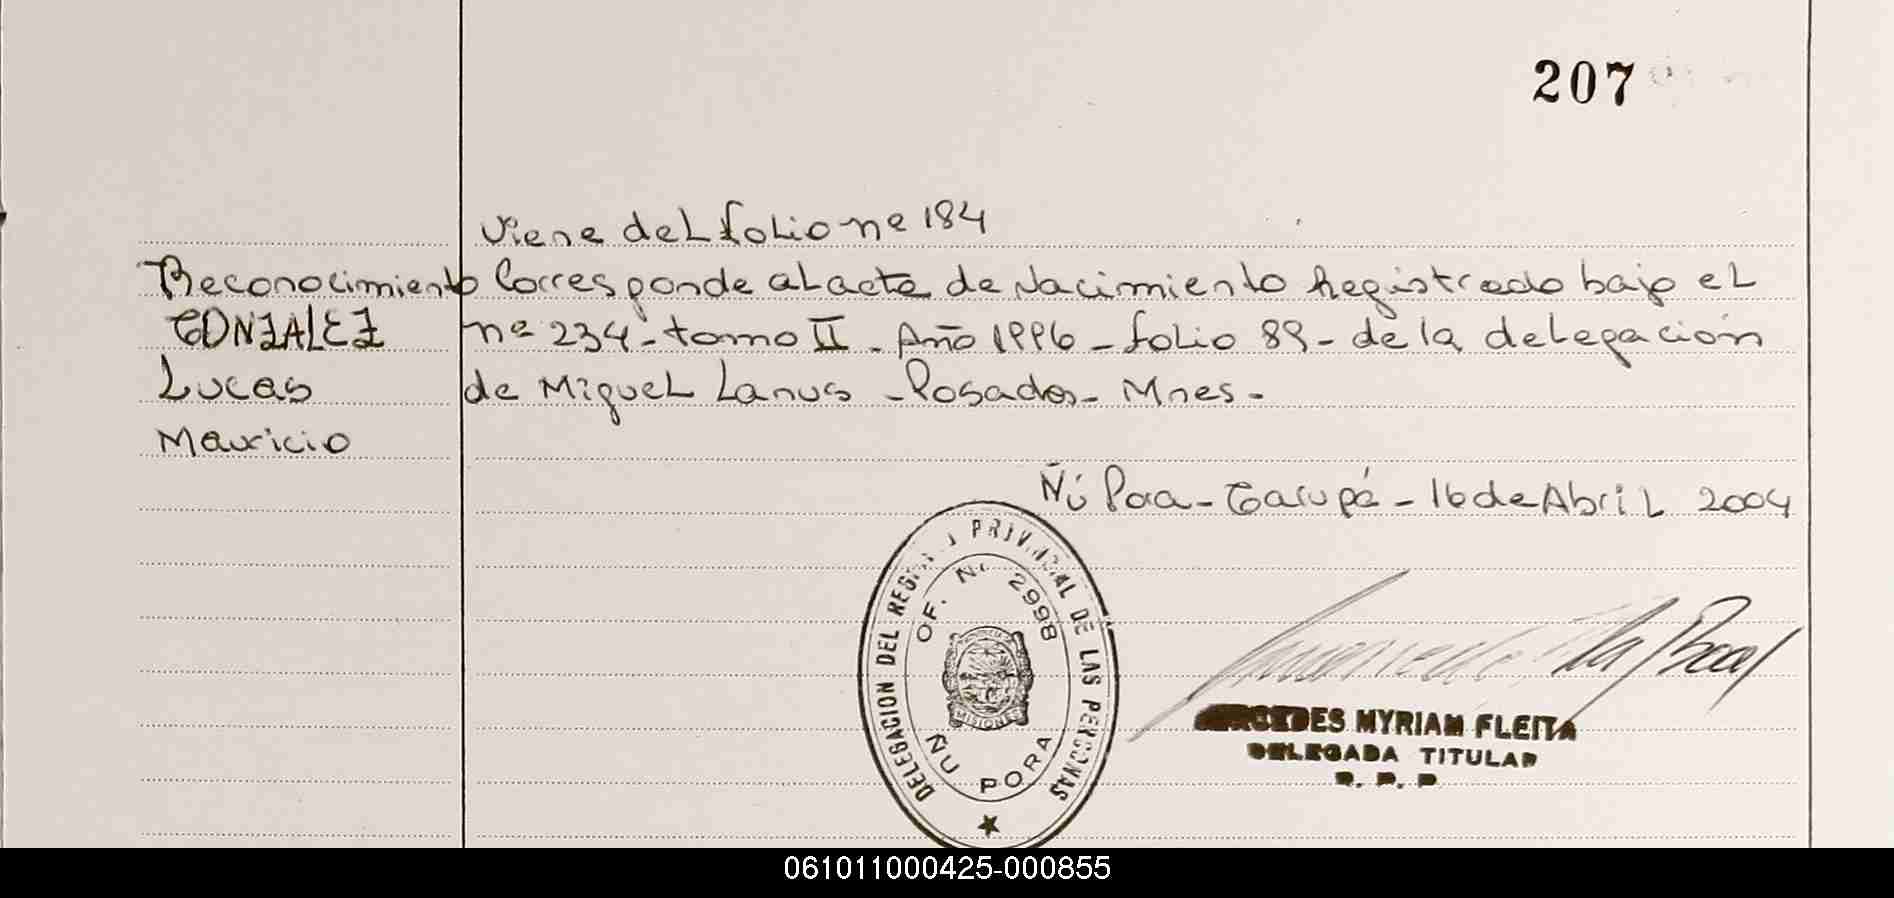 207
Viene del folio nº 184
Reconocimiento Corresponde al acta de Nacimiento Registrado bajo el
GONZALEZ nº 234 - tomo II - Año 1996 - folio 89 - de la delegación
Lucas de Miguel Lanus - Posadas - Mnes -
Mauricio
Ñú Pora - Garupá - 16 de Abril 2004
DELEGACION DEL REGISTRO PROVINCIAL DE LAS PERSONAS
OF. Nº 2998
MISIONES
ÑU PORA
MERCEDES MYRIAM FLEITA
DELEGADA TITULAR
R. P. P
061011000425-000855